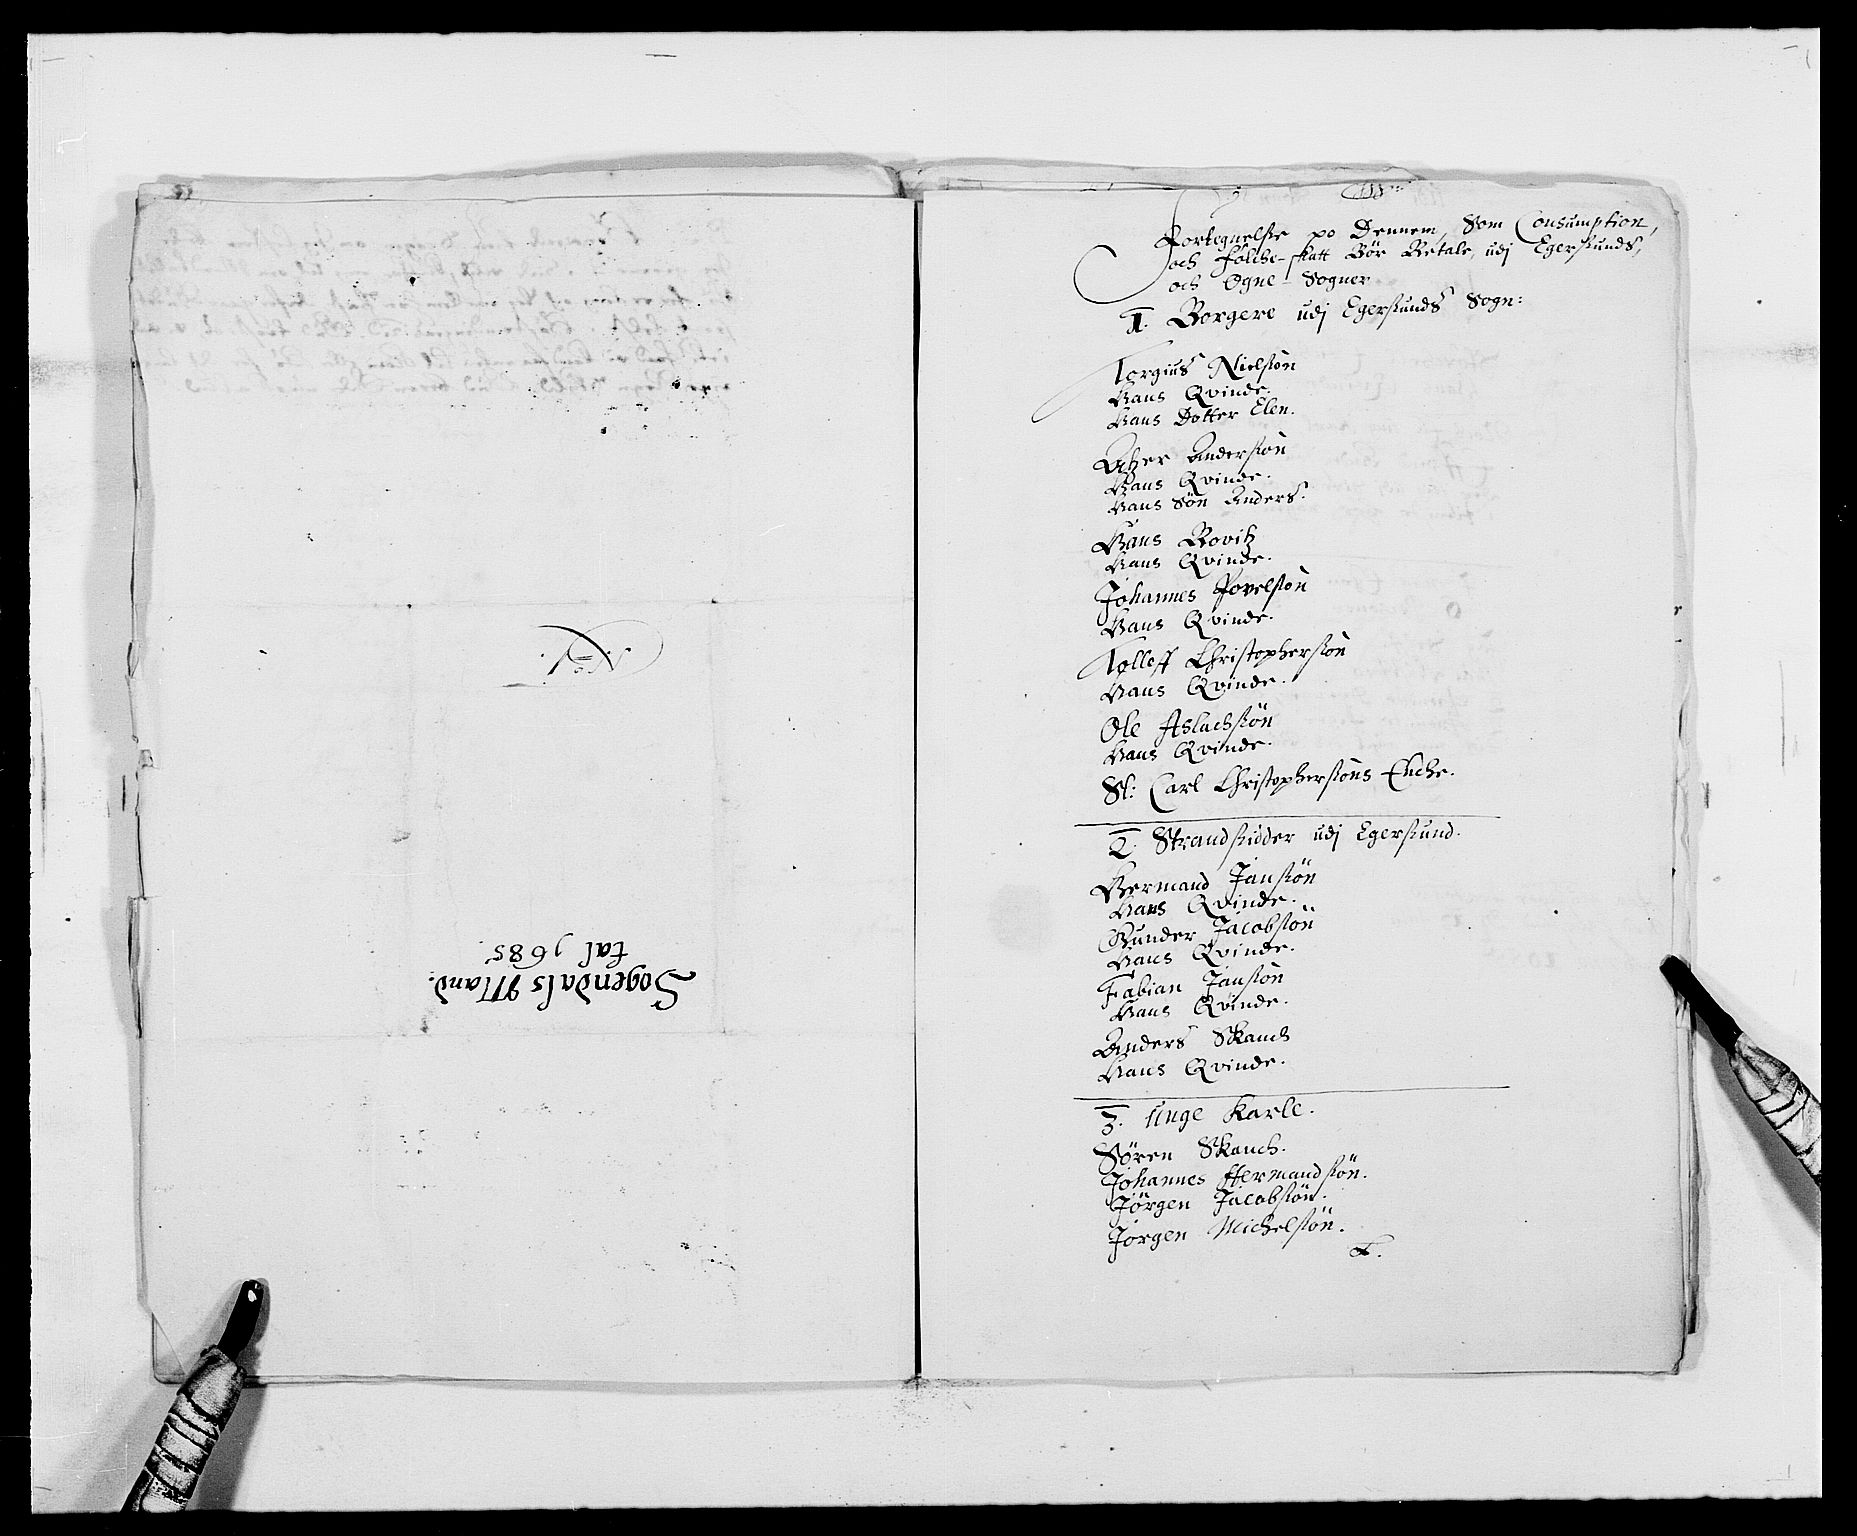 No 1.
Sogendals Mand.
tal 1685
Fortegnelse po Dennem, Som Consumption,
och folche-skatt Bör Betale, udj Egersunds,
och Ogne-Sogner
1. Borgere udj Egersunds Sogn:
Torgius Nielsøn
Hans Qvinde.
Hans Dotter Elen.
Atzer Andersøn
Hans Qvinde.
Hans Søn Anders.
Hans Bovitz
Hans Qvinde.
Johannes Povelsøn
Hans Qvinde.
Tolleff Christophersøn
Hans Qvinde.
Ole Aslachsøn
Hans Qvinde.
Sl: Carl Christophersøns Encke.
2. Strandsidder udj Egersund.
Hermand Jansøn
Hans Qvinde.
Gunder Jacobsøn
Hans Qvinde.
Fabian Jansøn
Hans Qvinde.
Anders Skanch
Hans Qvinde.
3. Unge Karle.
Søren Skanch.
Johannes Hermandsøn.
Jørgen Jacobsøn.
Jørgen Michelsøn.